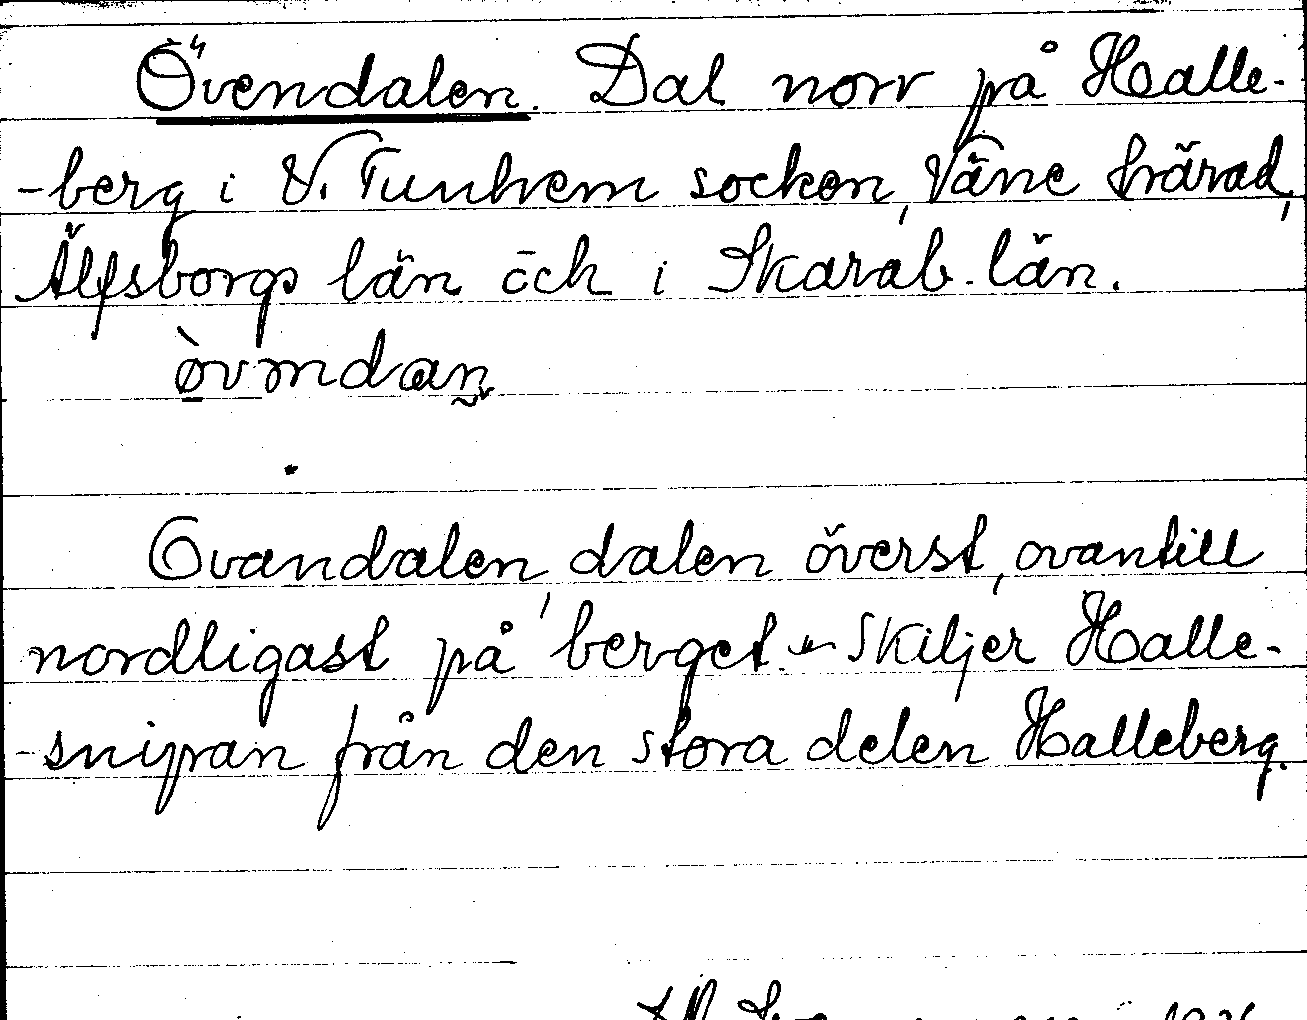 Övendalen. Dal norr på Halle-
-berg i V. Tunhem socken, Väne härad,
Älfsborgs län och i Skarab. län.
Ovandalen, dalen överst, ovantill
nordligast på berget. Skiljer Halle-
-snipan från den stora delen Halleberg.